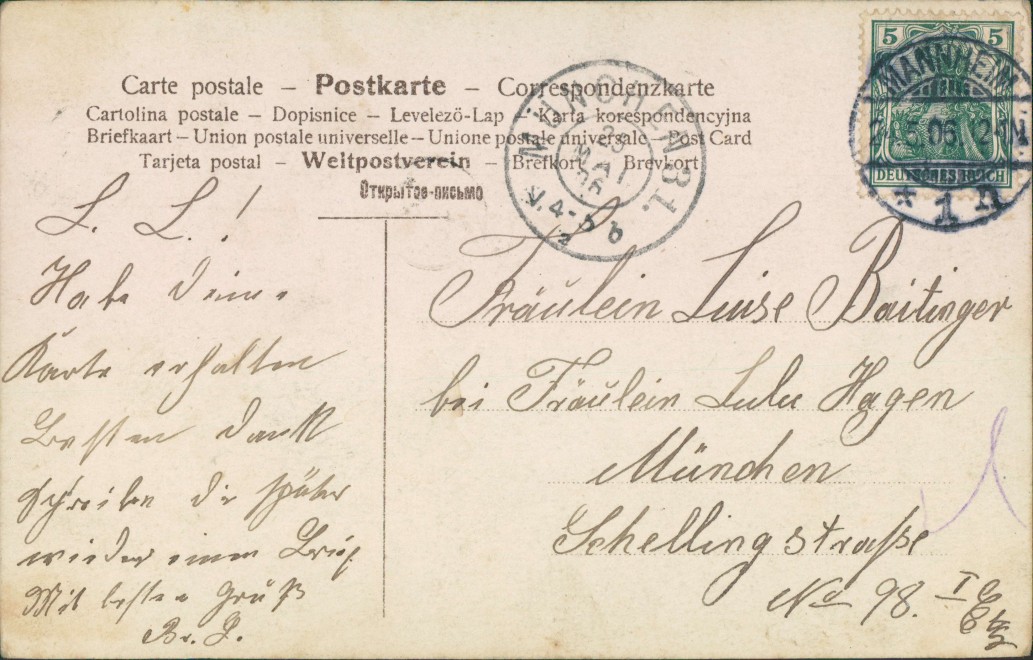 Carte postale – Postkarte – Correspondenzkarte
Cartolina postale – Dopisnice – Levelező-Lap – Karta korespondencyjna
Briefkaart – Union postale universelle – Unione postale universale – Post Card
Tarjeta postal – Weltpostverein – Brefkort – Brevkort
Открытое-письмо
MÜNCHEN B.I.
MAI
06
V. 4-5
5 5
DEUTSCHES REICH
MANNHEIM
5 06
* 1 n
L. L. !
Habe Deine
Karte erhalten
Besten Dank
Schreibe Dir später
wieder einen Brief.
Mit besten Gruß
Br. J.
Fräulein Luise Baitinger
bei Fräulein Lulu Hagen
München
Schellingstraße
No 98. I